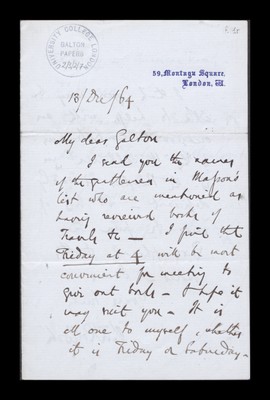 UNIVERSITY COLLEGE LONDON
GALTON
PAPERS
59, Montagu Square,
London, W.
18/Dec/64
My dear Galton
I send you the names
of the gentlemen in Masson's
list who are mentioned as
having reviewed books of
Travels &c — I find that
Friday at 4 will be most
convenient for meeting to
give out books — I hope it
may suit you — It is
all one to myself, whether
it is Friday or Saturday —